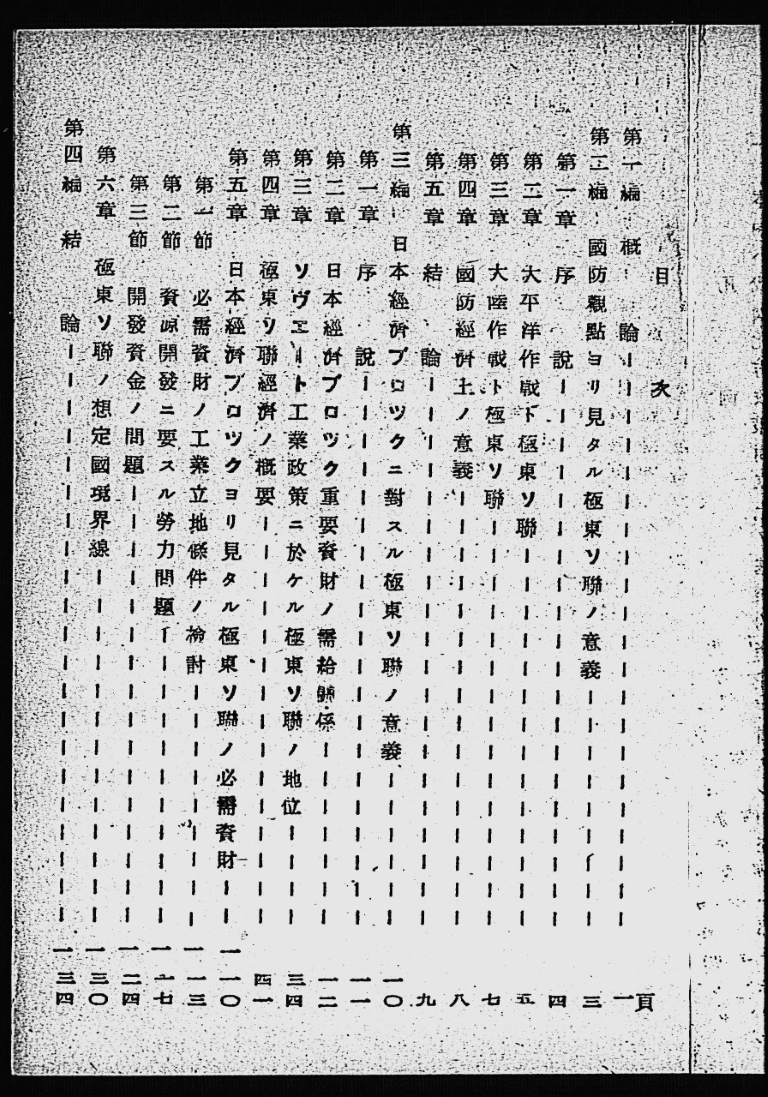 目次
頁
第一編 概論 一
第二編 國防觀點ヨリ見タル極東ソ聯ノ意義 三
第一章 序説 四
第二章 大平洋作戰ト極東ソ聯 五
第三章 大陸作戰ト極東ソ聯 七
第四章 國防經濟上ノ意義 八
第五章 結論 九
第三編 日本經濟ブロツクニ對スル極東ソ聯ノ意義 一〇
第一章 序説 一一
第二章 日本經濟ブロツク重要資財ノ需給關係 一二
第三章 ソヴエート工業政策ニ於ケル極東ソ聯ノ地位 三四
第四章 極東ソ聯經濟ノ概要 四一
第五章 日本經濟ブロツクヨリ見タル極東ソ聯ノ必需資財 一一〇
第一節 必需資財ノ工業立地條件ノ檢討 一一三
第二節 資源開發ニ要スル勞力問題 一一七
第三節 開發資金ノ問題 一二四
第六章 極東ソ聯ノ想定國境界線 一三〇
第四編 結論 一三四